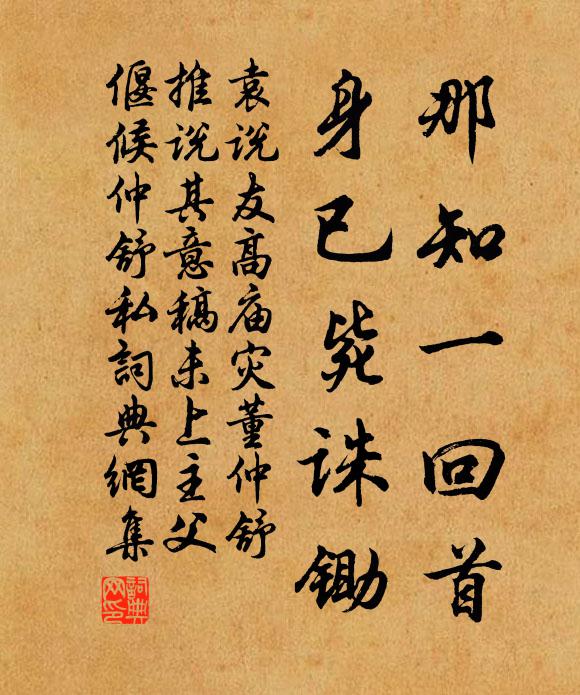 那知一回首
身已毙诛锄
袁说友高庙灾董仲舒
推说其意稿未上主父
偃候仲舒私詞典網集
詞典网印